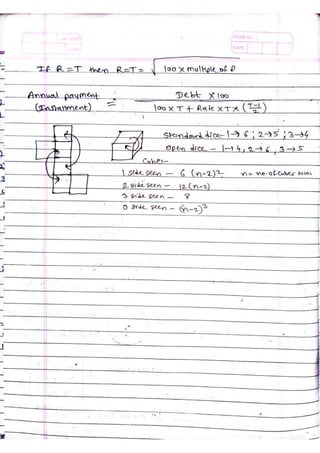 If R=T then R=T= √100 x multiple of P
Annual payment (Instalment) = Debt x 100 / 100 x T + Rate x T x (T-1/2)
Standard dice - 1→6 ; 2→5 ; 3→4
Open dice - 1→4, 2→6, 3→5
Cube:-
1 side seen - 6 (n-2)²
2 side seen - 12 (n-2)
3 side seen - 8
0 side seen - (n-2)³
n = no. of cubes